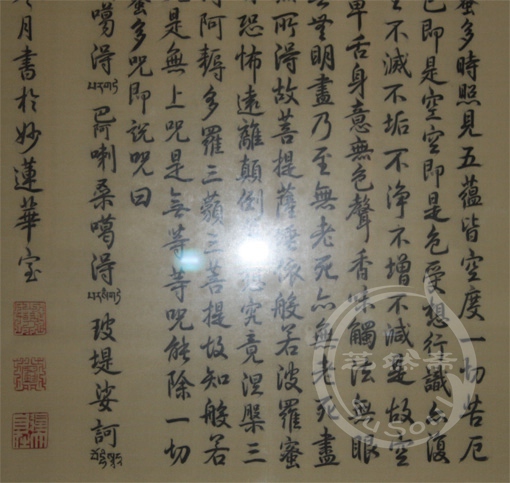 蜜多時照見五蘊皆空度一切苦厄
即是空空即是色受想行識亦復
不滅不垢不淨不增不減是故空
舌身意無色聲香味觸法無眼
無明盡乃至無老死亦無老死盡
所得故菩提薩埵依般若波羅蜜
恐怖遠離顛倒想究竟涅槃三
阿耨多羅三藐三菩提故知般若
是無上咒是無等等咒能除一切
蜜多咒即說咒曰
噶得巴阿喇桑噶得玻堤娑訶
月書於妙蓮華室